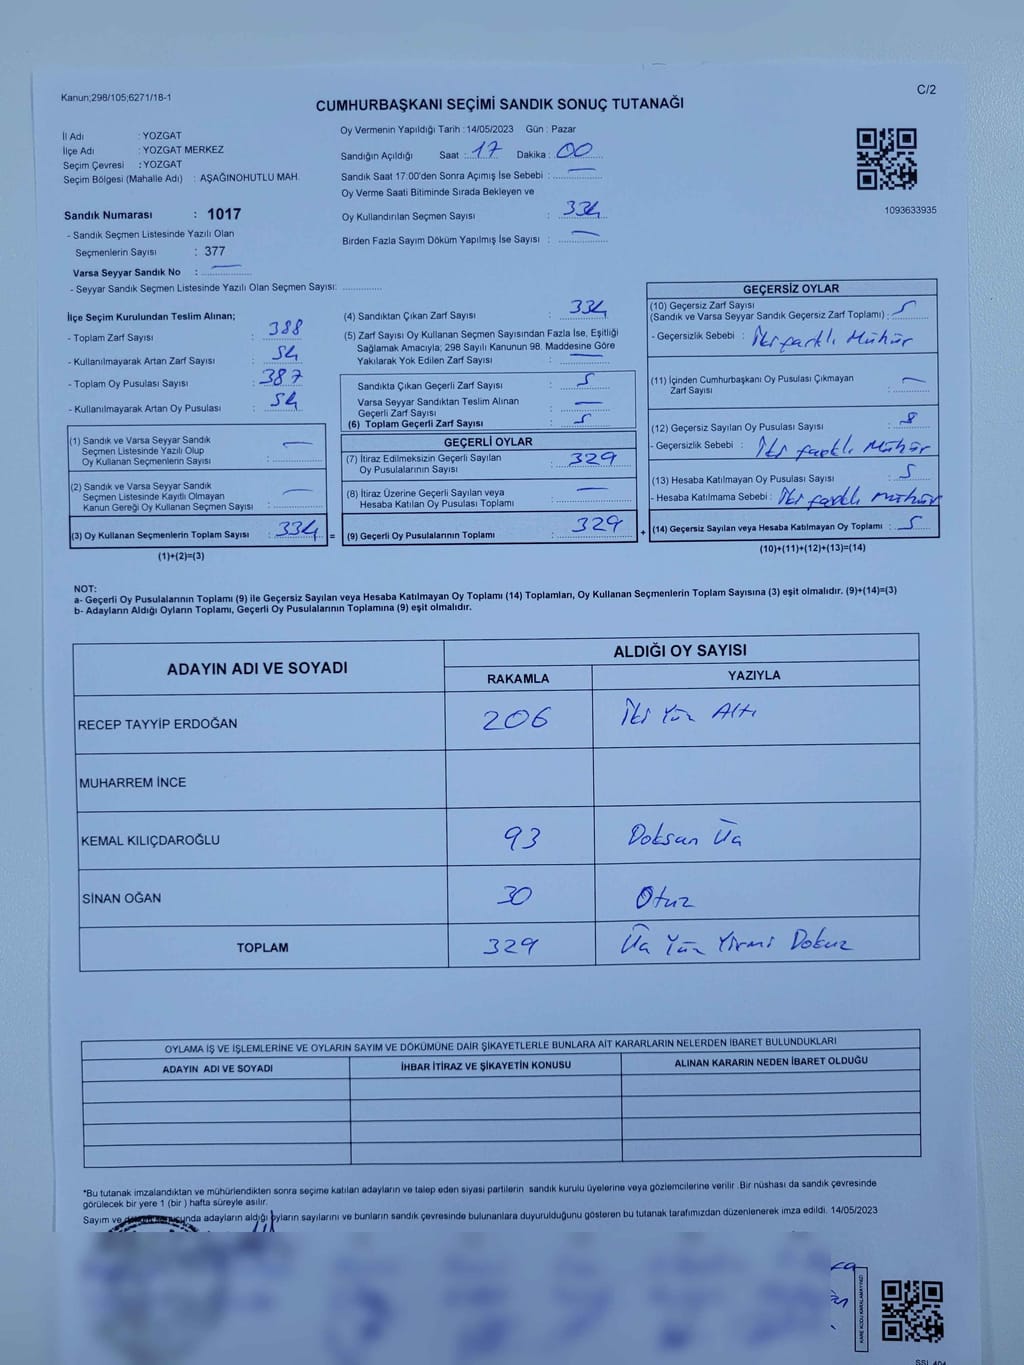 Kanun;298/105;6271/18-1
C/2
CUMHURBAŞKANI SEÇİMİ SANDIK SONUÇ TUTANAĞI
İl Adı : YOZGAT
İlçe Adı : YOZGAT MERKEZ
Seçim Çevresi : YOZGAT
Seçim Bölgesi (Mahalle Adı) : AŞAĞINOHUTLU MAH.
Sandık Numarası : 1017
- Sandık Seçmen Listesinde Yazılı Olan
Seçmenlerin Sayısı : 377
Varsa Seyyar Sandık No : —
- Seyyar Sandık Seçmen Listesinde Yazılı Olan Seçmen Sayısı:
Oy Vermenin Yapıldığı Tarih :14/05/2023 Gün : Pazar
Sandığın Açıldığı Saat : 17 Dakika : 00
Sandık Saat 17:00'den Sonra Açımış İse Sebebi : —
Oy Verme Saati Bitiminde Sırada Bekleyen ve
Oy Kullandırılan Seçmen Sayısı : 334
Birden Fazla Sayım Döküm Yapılmış İse Sayısı : —
1093633935
İlçe Seçim Kurulundan Teslim Alınan;
- Toplam Zarf Sayısı : 388
- Kullanılmayarak Artan Zarf Sayısı : 54
- Toplam Oy Pusulası Sayısı : 387
- Kullanılmayarak Artan Oy Pusulası : 54
(1) Sandık ve Varsa Seyyar Sandık
Seçmen Listesinde Yazılı Olup
Oy Kullanan Seçmenlerin Sayısı : —
(2) Sandık ve Varsa Seyyar Sandık
Seçmen Listesinde Kayıtlı Olmayan
Kanun Gereği Oy Kullanan Seçmen Sayısı : —
(3) Oy Kullanan Seçmenlerin Toplam Sayısı : 334 =
(1)+(2)=(3)
(4) Sandıktan Çıkan Zarf Sayısı : 334
(5) Zarf Sayısı Oy Kullanan Seçmen Sayısından Fazla İse, Eşitliği
Sağlamak Amacıyla; 298 Sayılı Kanunun 98. Maddesine Göre
Yakılarak Yok Edilen Zarf Sayısı : —
Sandıkta Çıkan Geçerli Zarf Sayısı : 5
Varsa Seyyar Sandıktan Teslim Alınan
Geçerli Zarf Sayısı : —
(6) Toplam Geçerli Zarf Sayısı : 5
GEÇERLİ OYLAR
(7) İtiraz Edilmeksizin Geçerli Sayılan
Oy Pusulalarının Sayısı : 329
(8) İtiraz Üzerine Geçerli Sayılan veya
Hesaba Katılan Oy Pusulası Toplamı : —
(9) Geçerli Oy Pusulalarının Toplamı : 329 +
GEÇERSİZ OYLAR
(10) Geçersiz Zarf Sayısı
(Sandık ve Varsa Seyyar Sandık Geçersiz Zarf Toplamı) : 5
- Geçersizlik Sebebi : İki farklı Mühür
(11) İçinden Cumhurbaşkanı Oy Pusulası Çıkmayan
Zarf Sayısı : —
(12) Geçersiz Sayılan Oy Pusulası Sayısı : 8
- Geçersizlik Sebebi : İki farklı Mühür
(13) Hesaba Katılmayan Oy Pusulası Sayısı : 5
- Hesaba Katılmama Sebebi : İki farklı mühür
(14) Geçersiz Sayılan veya Hesaba Katılmayan Oy Toplamı : 5
(10)+(11)+(12)+(13)=(14)
NOT:
a- Geçerli Oy Pusulalarının Toplamı (9) ile Geçersiz Sayılan veya Hesaba Katılmayan Oy Toplamı (14) Toplamları, Oy Kullanan Seçmenlerin Toplam Sayısına (3) eşit olmalıdır. (9)+(14)=(3)
b- Adayların Aldığı Oyların Toplamı, Geçerli Oy Pusulalarının Toplamına (9) eşit olmalıdır.
ADAYIN ADI VE SOYADI
ALDIĞI OY SAYISI
RAKAMLA YAZIYLA
RECEP TAYYİP ERDOĞAN 206 İki Yüz Altı
MUHARREM İNCE
KEMAL KILIÇDAROĞLU 93 Doksan Üç
SİNAN OĞAN 30 Otuz
TOPLAM 329 Üç Yüz Yirmi Dokuz
OYLAMA İŞ VE İŞLEMLERİNE VE OYLARIN SAYIM VE DÖKÜMÜNE DAİR ŞİKAYETLERLE BUNLARA AİT KARARLARIN NELERDEN İBARET BULUNDUKLARI
ADAYIN ADI VE SOYADI İHBAR İTİRAZ VE ŞİKAYETİN KONUSU ALINAN KARARIN NEDEN İBARET OLDUĞU
*Bu tutanak imzalandıktan ve mühürlendikten sonra seçime katılan adayların ve talep eden siyasi partilerin sandık kurulu üyelerine veya gözlemcilerine verilir .Bir nüshası da sandık çevresinde
görülecek bir yere 1 (bir ) hafta süreyle asılır.
Sayım ve adayların aldığı oyların sayılarını ve bunların sandık çevresinde bulunanlara duyurulduğunu gösteren bu tutanak tarafımızdan düzenlenerek imza edildi. 14/05/2023
KARE KODU KARALAMAYINIZ!